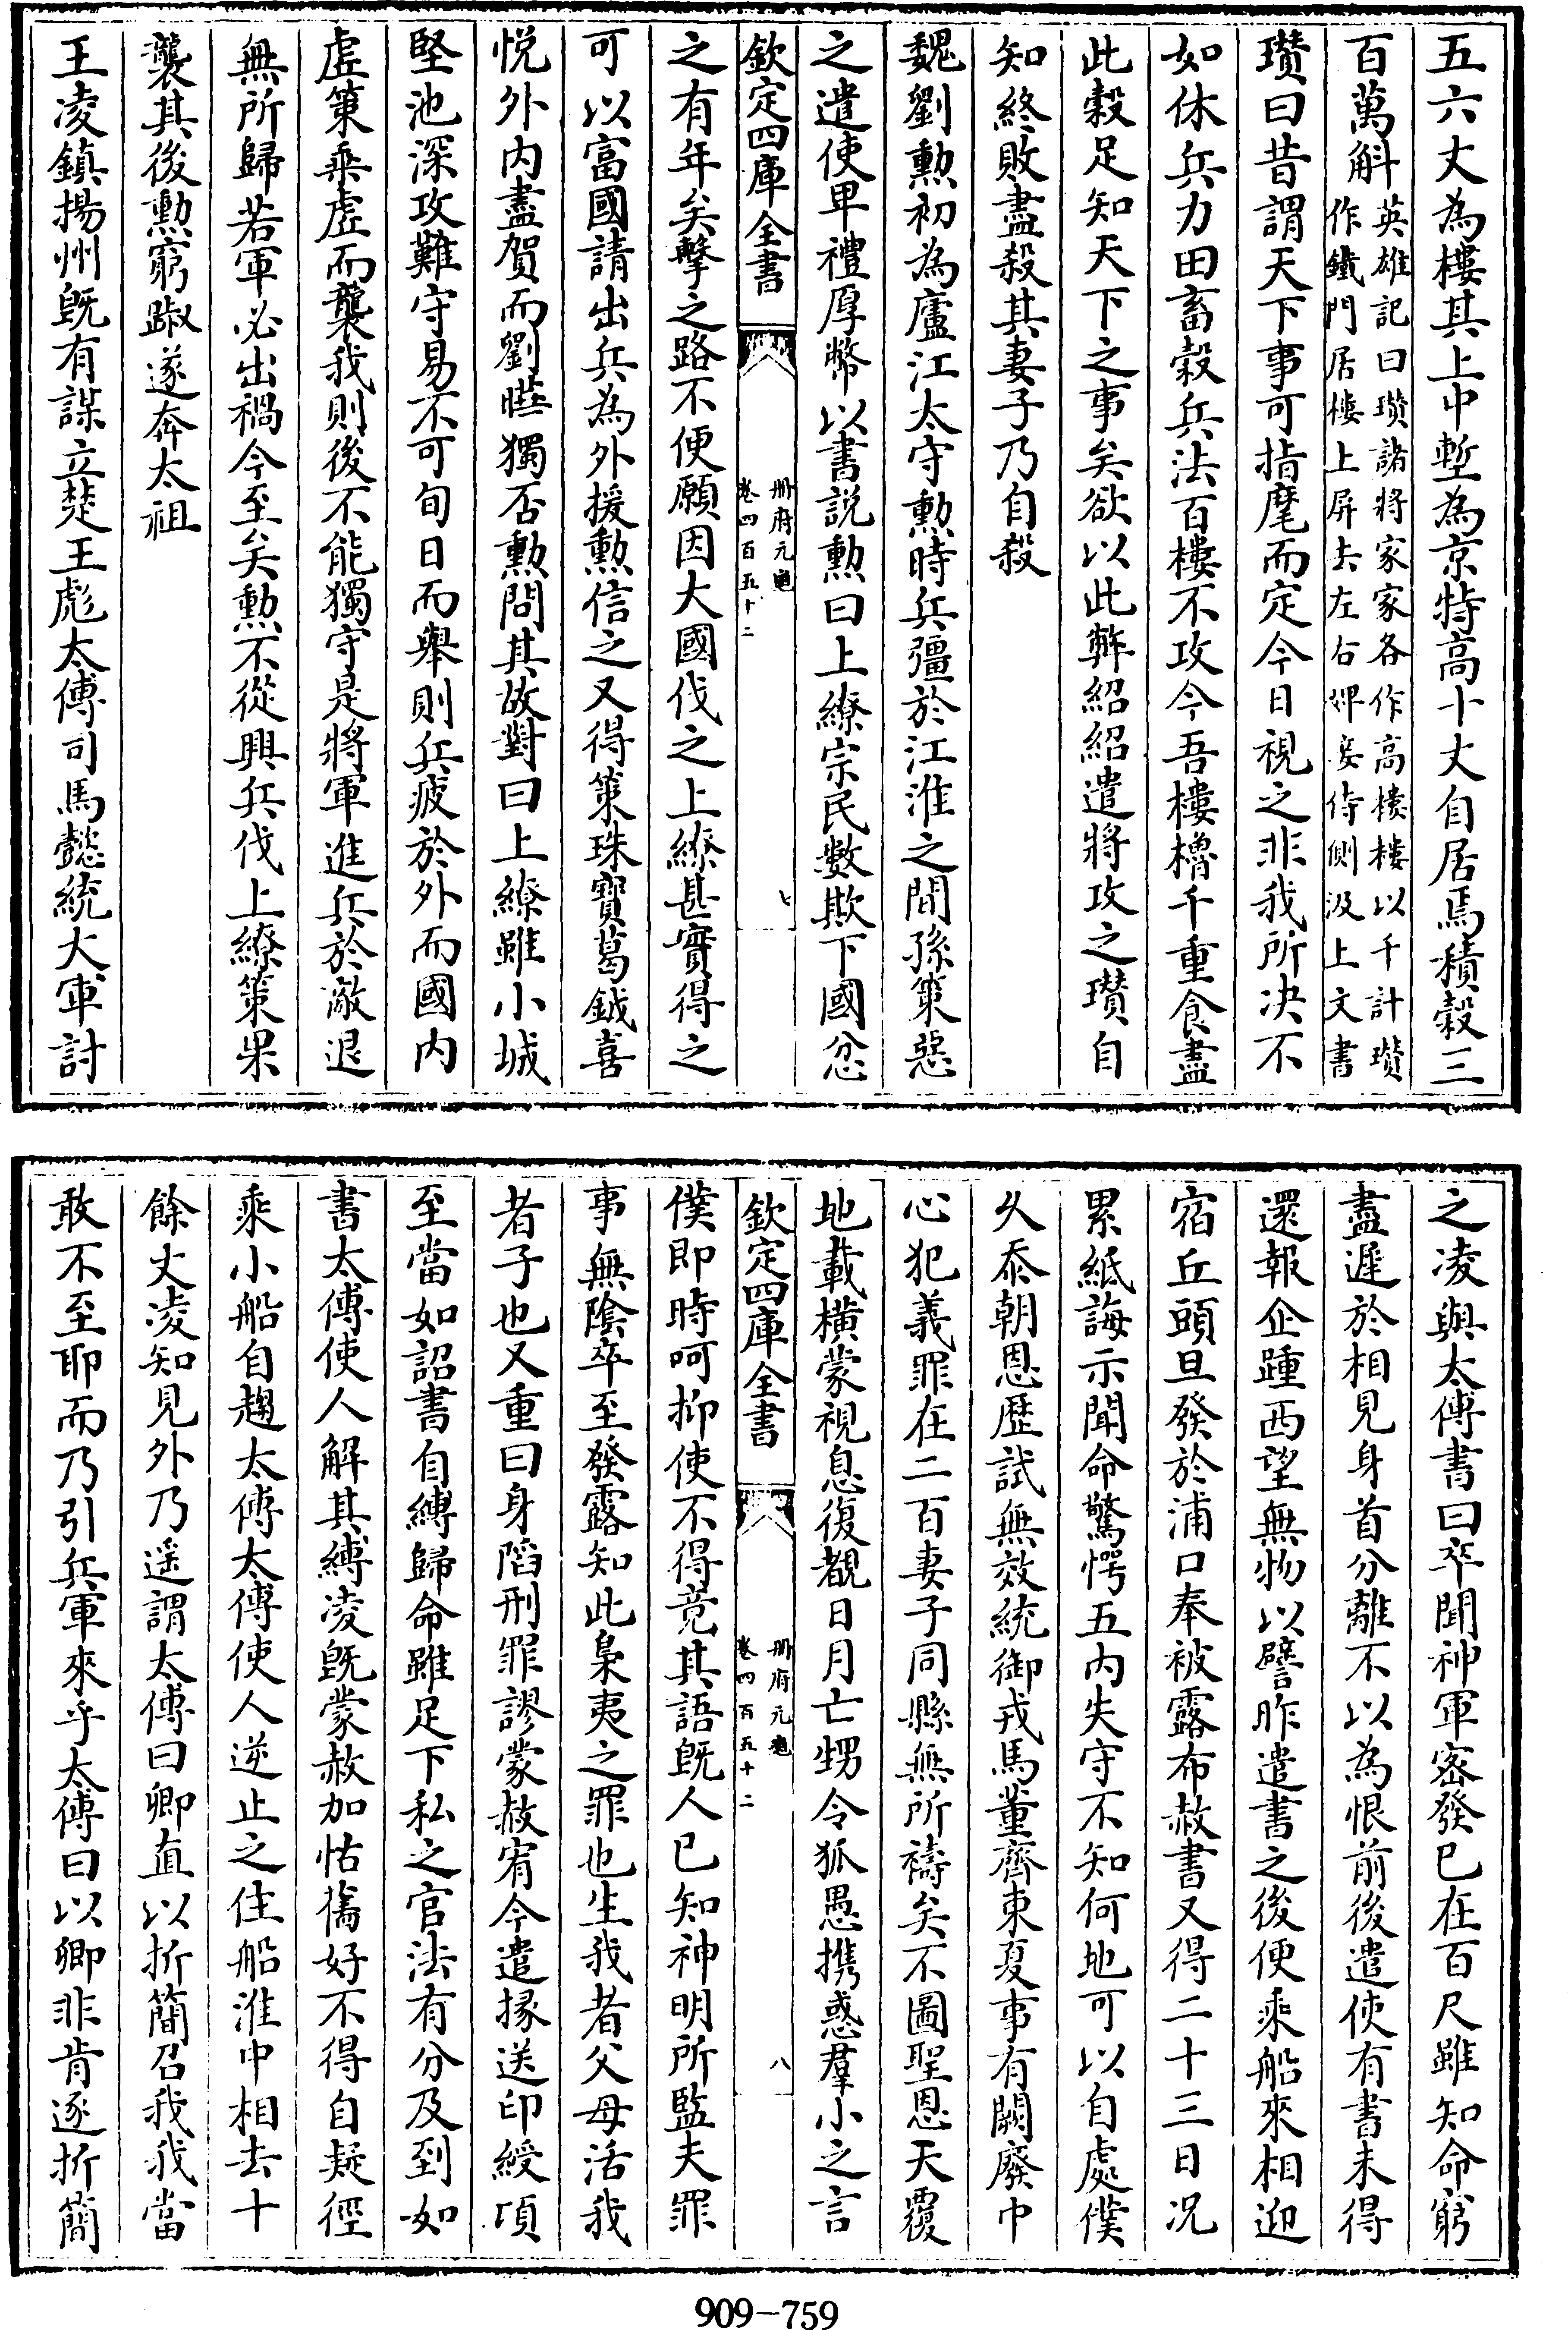 五六丈為樓其上中塹為京特高十丈自居焉積穀三
百萬斛英雄記曰瓚諸將家家各作高樓樓以千計瓚
作鐵門居樓上屏去左右婢妾侍側汲上文書
瓚曰昔謂天下事可指麾而定今日視之非我所决不
如休兵力田畜穀兵法百樓不攻今吾樓櫓千重食盡
此穀足知天下之事矣欲以此斃紹紹遣將攻之瓚自
知終敗盡殺其妻子乃自殺
魏劉勲初為廬江太守勲時兵彊於江淮之間孫策惡
之遣使卑禮厚幣以書說勲曰上繚宗民數欺下國忿
欽定四庫全書
册府元龜
卷四百五十二
七
之有年矣擊之路不便願因大國伐之上繚甚實得之
可以富國請出兵為外援勲信之又得策珠寳葛鉞喜
悅外内盡賀而劉曄獨否勲問其故對曰上繚雖小城
堅池深攻難守易不可旬日而舉則兵疲於外而國内
虛策乘虛而襲我則後不能獨守是將軍進兵於敵退
無所歸若軍必出禍今至矣勲不從興兵伐上繚策果
襲其後勲窮踧遂奔太祖
王凌鎮揚州旣有謀立楚王彪太傅司馬懿統大軍討
之凌與太傅書曰卒聞神軍密發已在百尺雖知命窮
盡遲於相見身首分離不以為恨前後遣使有書未得
還報企踵西望無物以譬昨遣書之後便乘船來相迎
宿丘頭旦發於浦口奉被露布赦書又得二十三日况
累紙誨示聞命驚愕五内失守不知何地可以自處僕
久忝朝恩歷試無效統御戎馬董齊東夏事有闕廢中
心犯義罪在二百妻子同縣無所禱矣不圖聖恩天覆
地載橫蒙視息復覩日月亡甥令狐愚携惑羣小之言
欽定四庫全書
册府元龜
卷四百五十二
八
僕即時呵抑使不得竟其語旣人已知神明所監夫罪
事無陰卒至發露知此梟夷之罪也生我者父母活我
者子也又重曰身陷刑罪謬蒙赦宥今遣掾送印綬項
至當如詔書自縛歸命雖足下私之官法有分及到如
書太傅使人解其縛凌旣蒙赦加怙舊好不得自疑徑
乘小船自趨太傅太傅使人逆止之住船淮中相去十
餘丈凌知見外乃遥謂太傅曰卿直以折簡召我我當
敢不至耶而乃引兵軍來乎太傅曰以卿非肯逐折簡
909-759